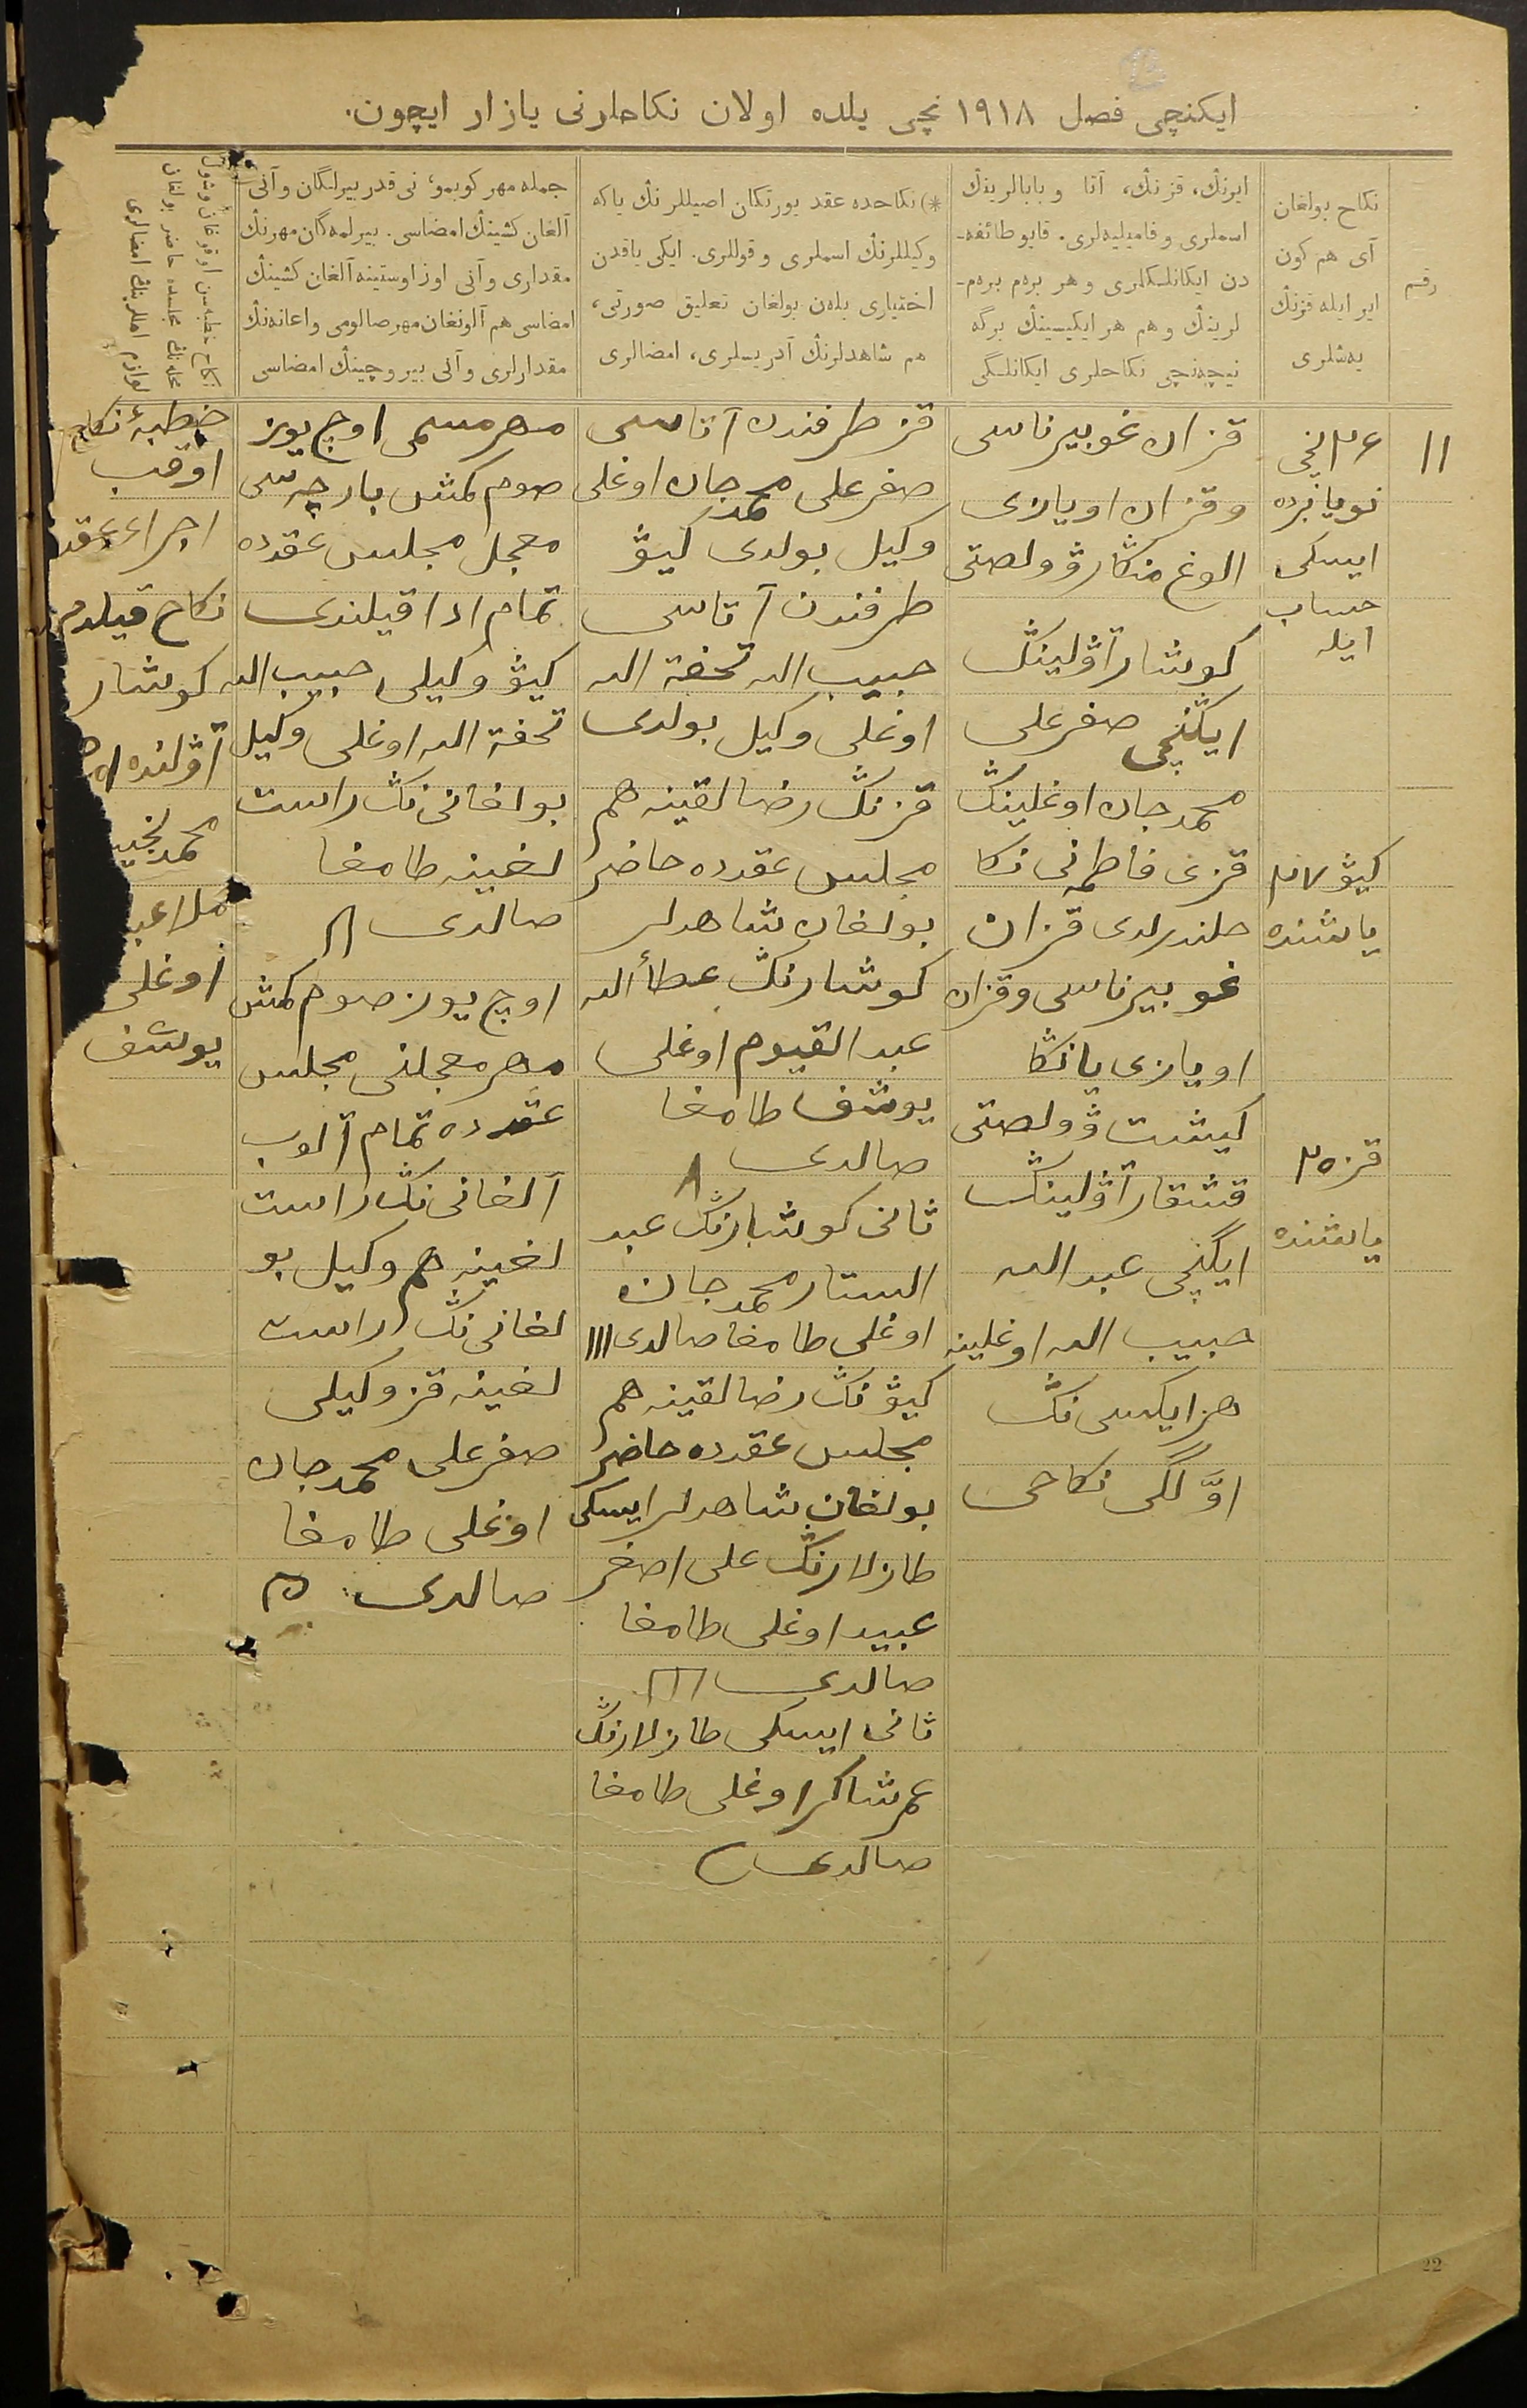 ایکنچی فصل ۱۹۱۸ نچی یلده اولان نکاحلرنی یازار ایچون.
رقم
نکاح بولغان
آی هم کون
ایر ایله قزنڭ
یەشلری
ایرنڭ، قزنڭ، آتا و بابالرینڭ
اسملری و فامیلیەلری. قایو طائفه‌ـ
دن ایکانلکلری و هر برەم برەم‌ـ
لرینڭ و هم هر ایکیسینڭ برگه
نیچەنچی نکاحلری ایکانلگی
*) نکاحده عقد یورتکان اصیللرنڭ یاکه
وکیللرنڭ اسملری و قوللری. ایکی یاقدن
اختیاری بلەن بولغان تعلیق صورتی،
هم شاهدلرنڭ آدریسلری، امضالری
جمله مهر کوبمو؛ نی قدر بیرلگان و آنی
آلغان کشینڭ امضاسی. بیرلمەگان مهرنڭ
مقداری و آنی اوز اوستینه آلغان کشینڭ
امضاسی هم آلونغان مهر صالومی و اعانەنڭ
مقدارلری و آنی بیروچینڭ امضاسی
نکاح خطبەسن اوقوغان و شول
محلەنڭ مجلسده حاضر بولغان
لوازم اهللرینڭ امضالری
۱۱
۲۶ نچی
نویابرده
ایسکی
حساب
ایله
کیۋ ۲۷
یاشنده
قز ۲۵
یاشنده
قزان غوبیرناسی
و قزان اویازی
الوغ منکار ۋولصتی
کوشار آۋلینڭ
ایکنچی صفرعلی
محمدجان اوغلینڭ
قزی فاطمەنی نکا
حلندرلدی قزان
غوبیرناسی و قزان
اویازی یانکا
کیشت ۋولصتی
قشقار آۋلینڭ
ایکنچی عبد الله
حبیب الله اوغلینه
هر ایکسی نڭ
اوّلگی نکاحی
قز طرفندن آتاسی
صفرعلی محمدجان اوغلی
وکیل بولدی کیۋ
طرفندن آتاسی
حبیب الله تحفة الله
اوغلی وکیل بولدی
قزنڭ رضالقینه هم
مجلس عقدده حاضر
بولغان شاهدلر
کوشارنڭ عطأ الله
عبد القیوم اوغلی
یوشف طامغا
صالدی
ثانی کوشارنڭ عبد
الستار محمدجان
اوغلی طامغا صالدی ااا
کیۋ نڭ رضالقینه هم
مجلس عقدده حاضر
بولغان شاهدلر ایسکی
طازلارنڭ علی اصغر
عبید اوغلی طامغا
صالدی
ثانی ایسکی طازلارنڭ
عمر شاکر اوغلی طامغا
صالدی
مهر مسمی اوچ یوز
صوم کمش بارچەسی
معجل مجلس عقدده
تمام ادا قیلندی
کیۋ وکیلی حبیب الله
تحفة الله اوغلی وکیل
بولغانی نڭ راست
لغینه طامغا
صالدی
اوچ یوز صوم کمش
مهر معجلنی مجلس
عقدده تمام آلوب
آلغانی نڭ راست
لغینه هم وکیل بو
لغانی نڭ راست
لغینه قز وکیلی
صفرعلی محمدجان
اوغلی طامغا
صالدی
خطبۀ نکاح
اوقب
اجراء عقد
نکاح قیلدم
کوشار
آۋلنده
محمد نجیب
ملا
اوغلی
یوشف
22